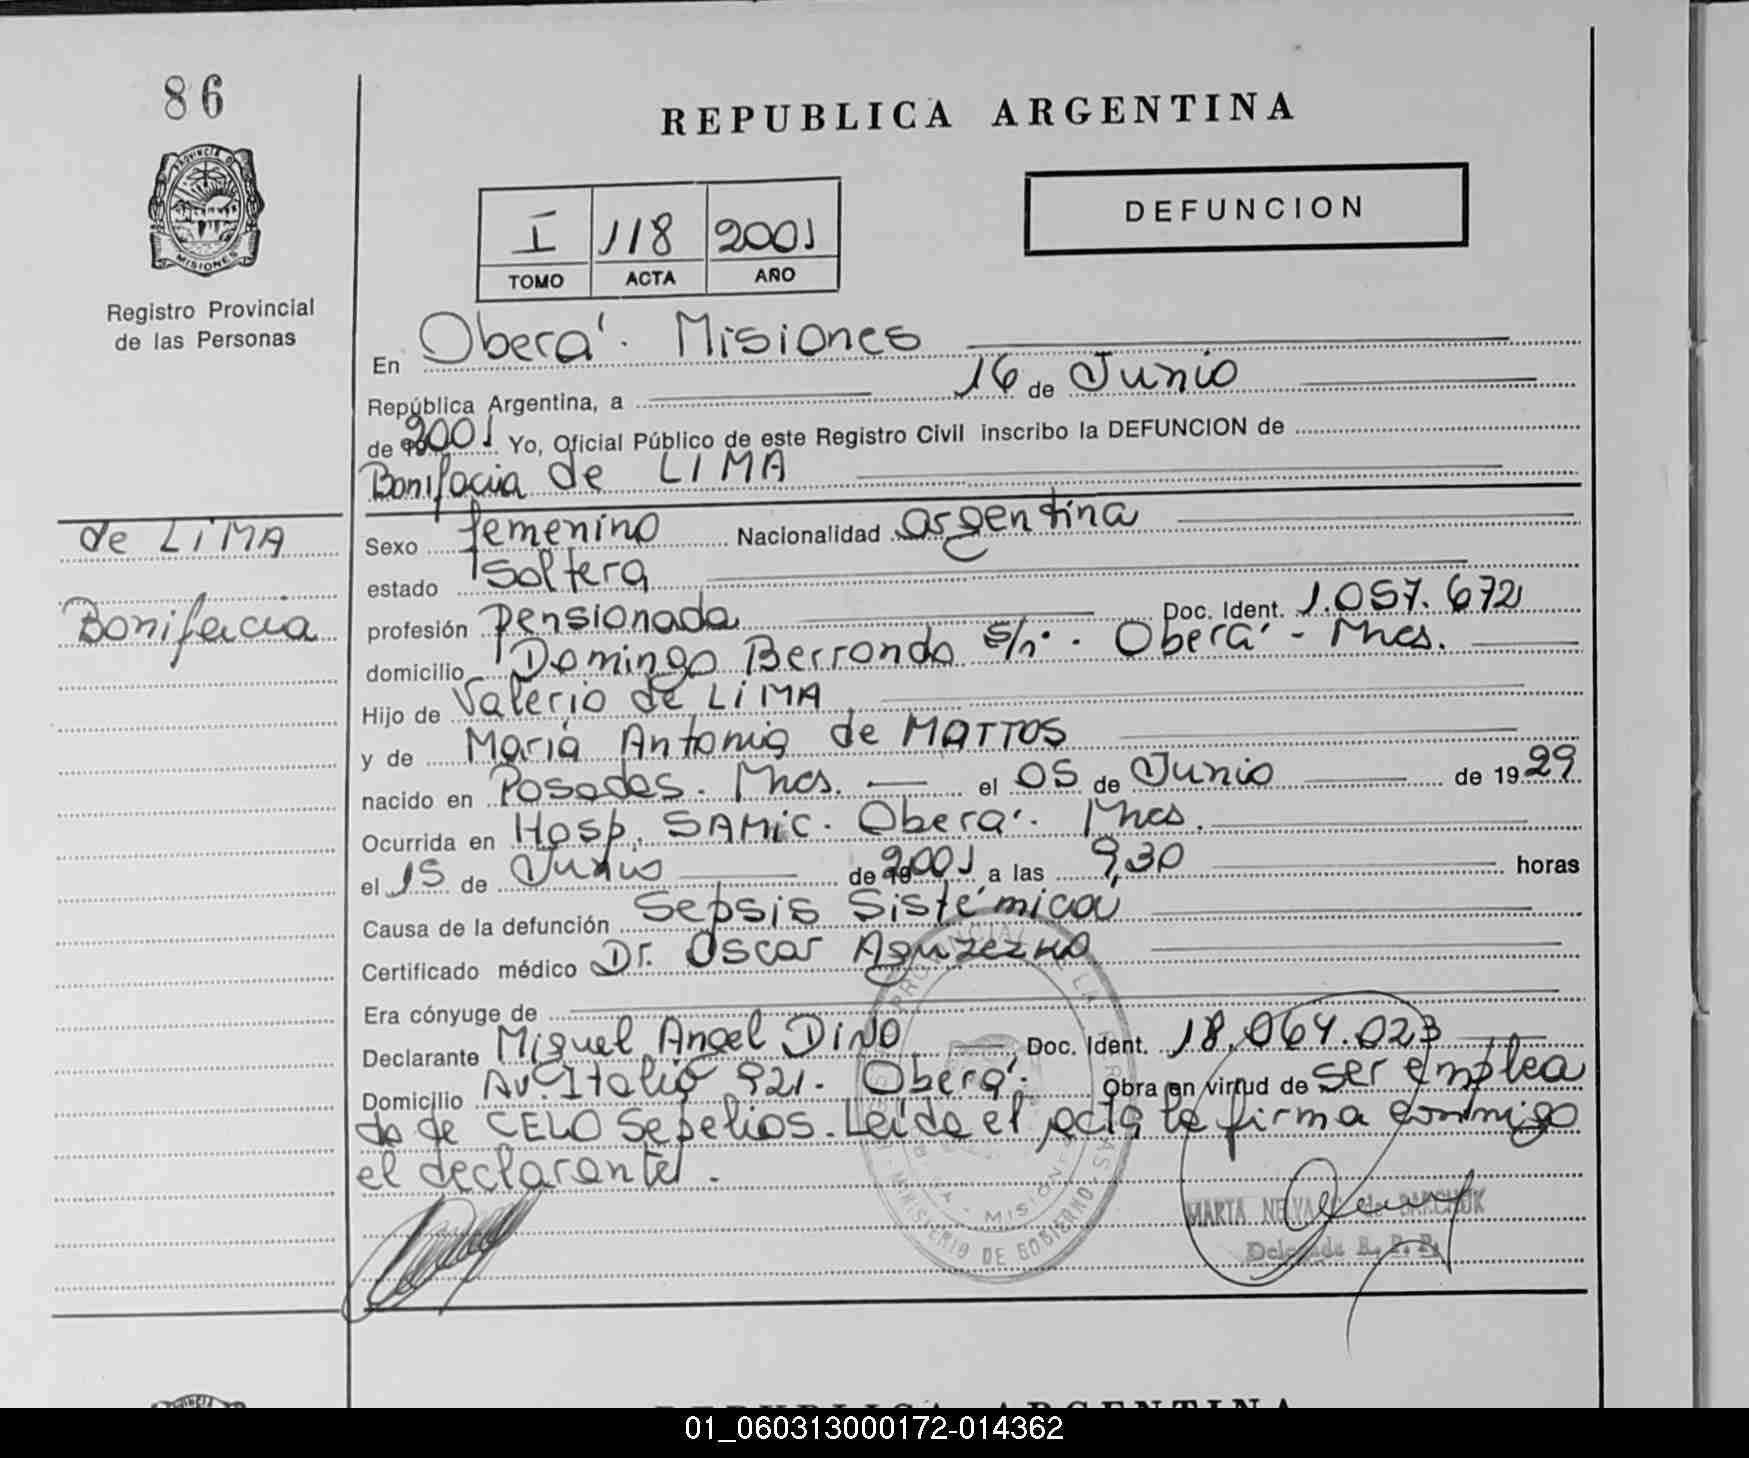 86
REPUBLICA ARGENTINA
PROVINCIA D
MISIONES
DEFUNCION
I 118 2001
TOMO ACTA AÑO
Registro Provincial
de las Personas
En Oberá. Misiones
República Argentina, a 16 de Junio
de 2001 Yo, Oficial Público de este Registro Civil inscribo la DEFUNCION de
Bonifacia de LIMA
de LIMA
Bonifacia
Sexo femenino Nacionalidad argentina
estado Soltera
profesión pensionada Doc. Ident. 1.057.672
domicilio Domingo Berrondo s/n. Oberá - Mnes.
Hijo de Valerio de LIMA
y de María Antonia de MATTOS
nacido en Posadas. Mnes. el 05 de Junio de 1929
Ocurrida en Hosp. SAMIC. Oberá. Mnes.
el 15 de Junio de 2001 a las 9,30 horas
Causa de la defunción Sepsis Sistémica
Certificado médico Dr. Oscar
Era cónyuge de
Declarante Miguel Angel DINO Doc. Ident. 18.064.023
Domicilio Av. Italia 921. Oberá. Obra en virtud de ser emplea
do de CELO Sepelios. Leída el acta la firma conmigo
el declarante.
MINISTERIO DE GOBIERNO
MISIONES
MARTA NELVA de BARCHUK
Delegada R. P. P.
REPUBLICA ARGENTINA
01_060313000172-014362